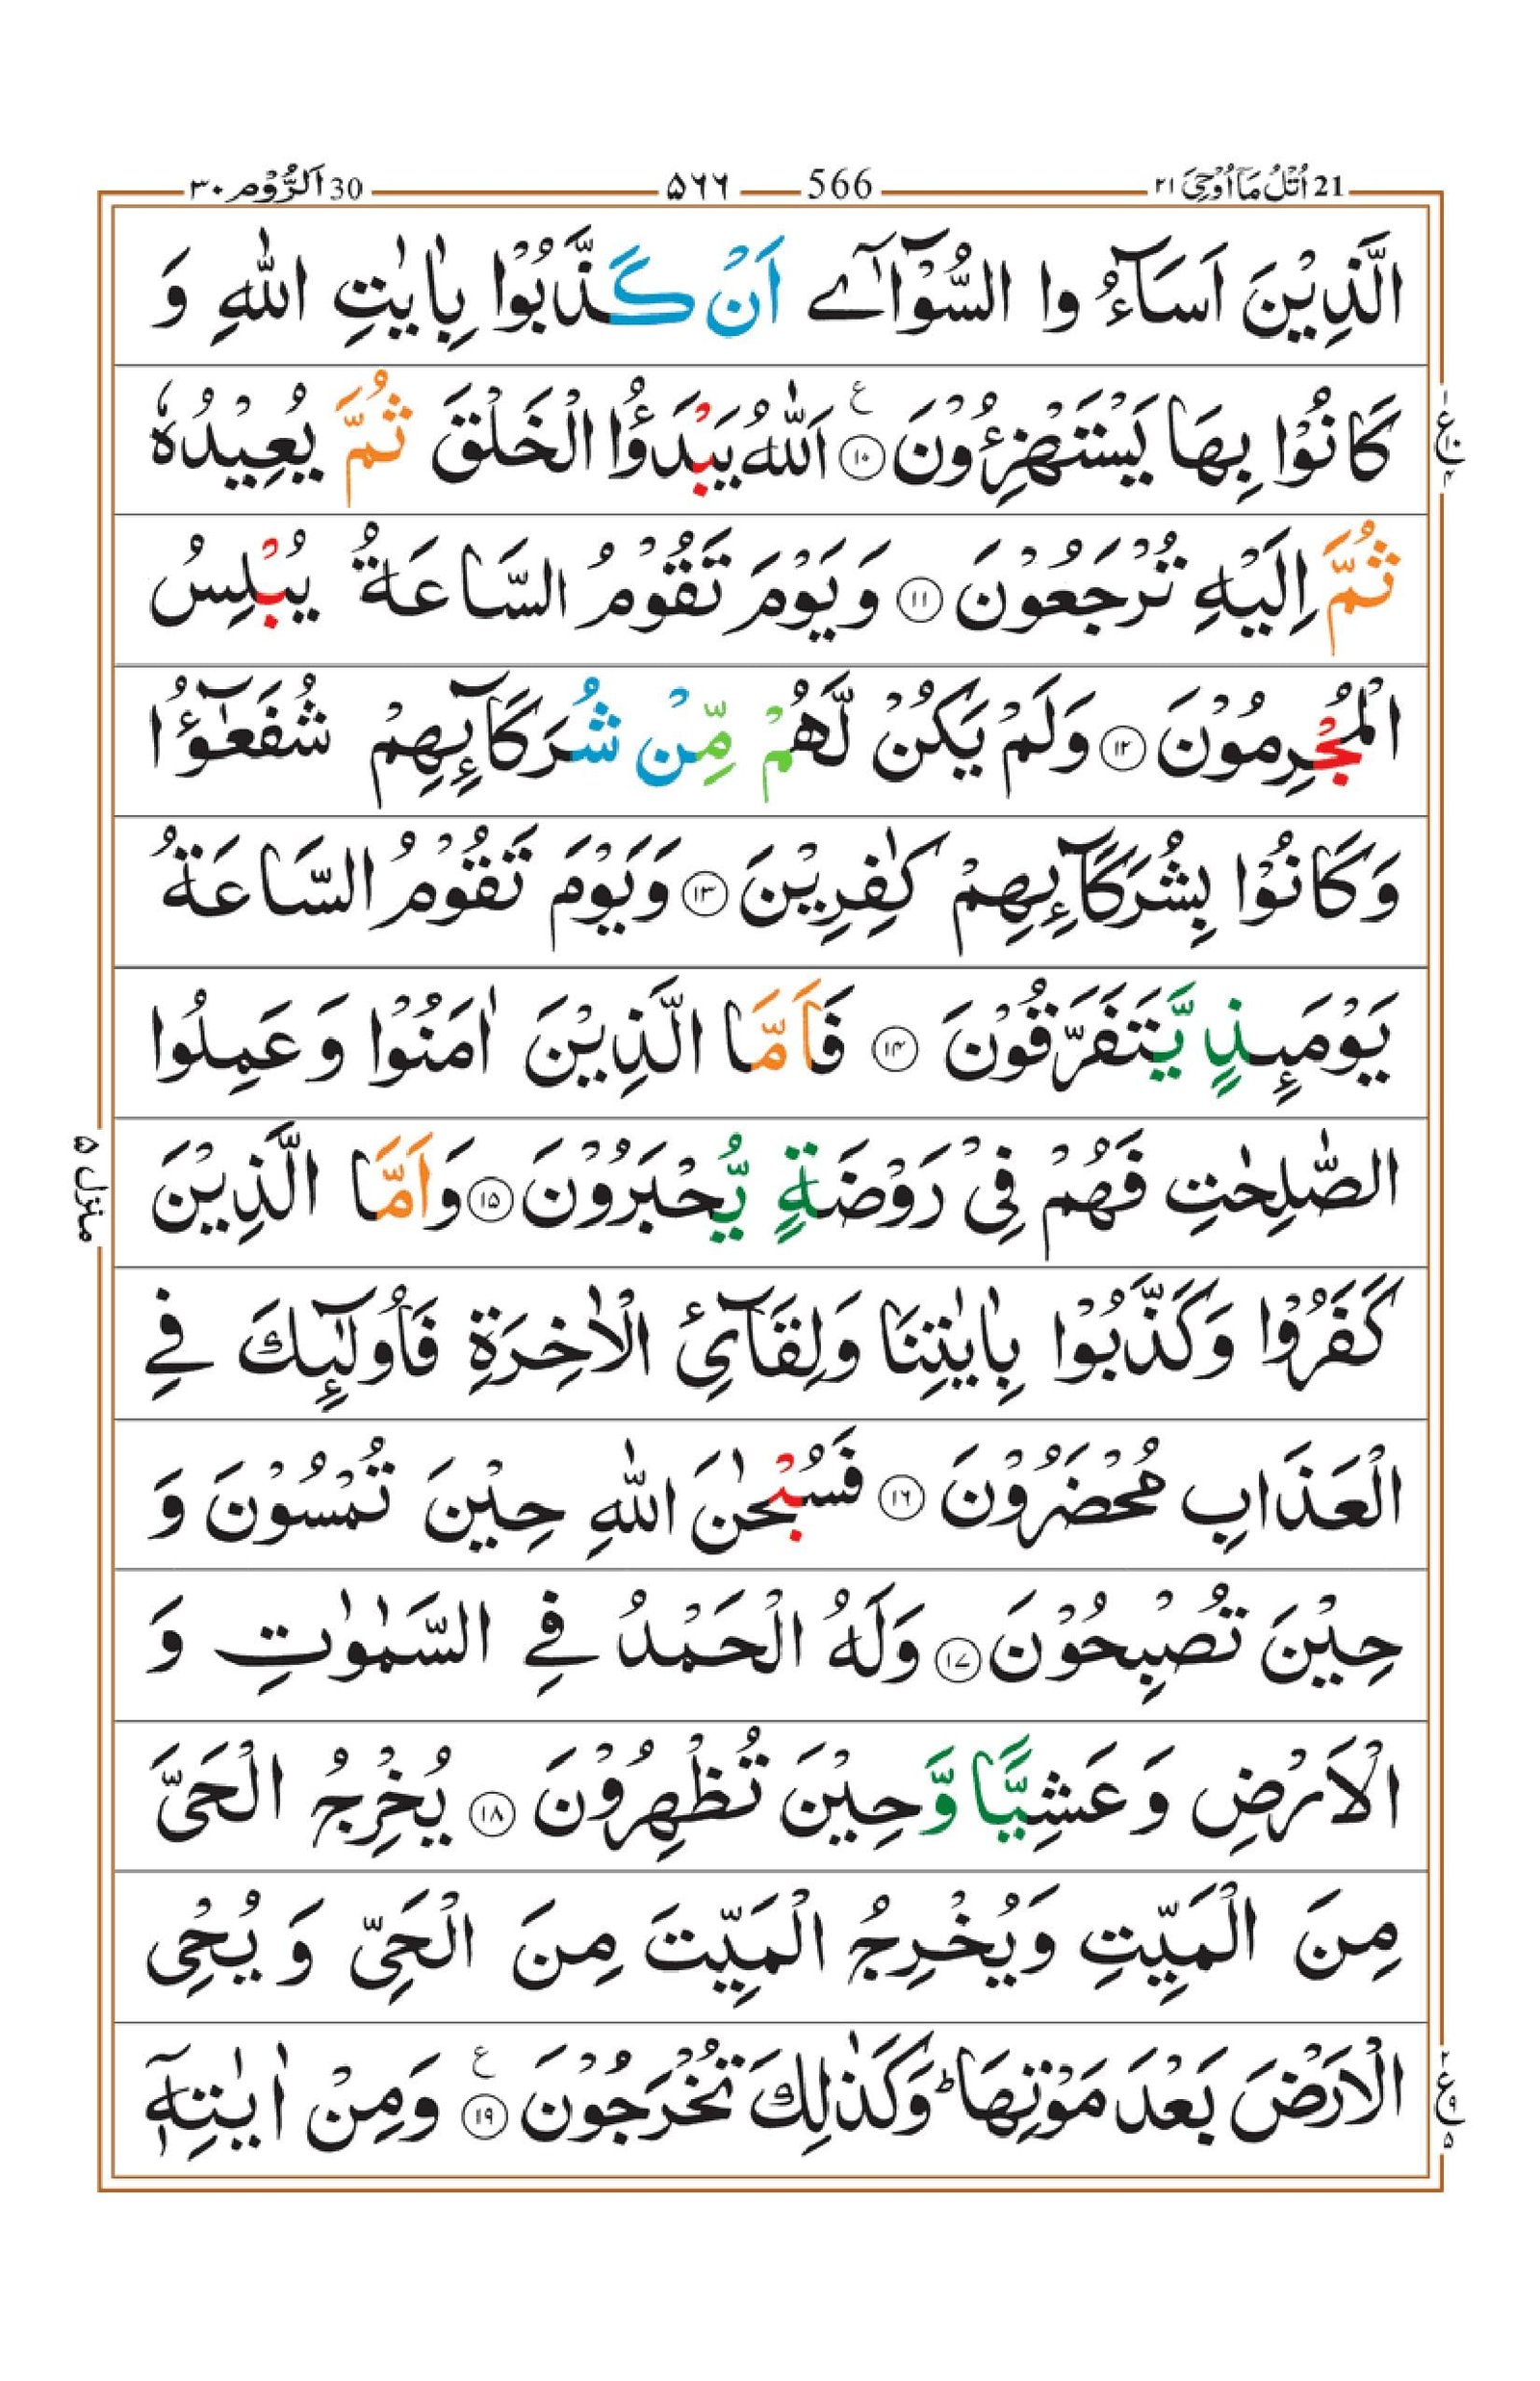 21 اُتْلُ مَاۤ اُوْحِیَ ۲۱ 566 ۵۶۶ 30 اَلرُّوْم ۳۰
الَّذِیْنَ اَسَآءُ وا السُّوْٓاٰۤے اَنْ كَذَّبُوْا بِاٰیٰتِ اللّٰهِ وَ
كَانُوْا بِهَا یَسْتَهْزِءُوْنَ ۱۰ ع اَللّٰهُ یَبْدَؤُا الْخَلْقَ ثُمَّ یُعِیْدُهٗ
ثُمَّ اِلَیْهِ تُرْجَعُوْنَ ۱۱ وَیَوْمَ تَقُوْمُ السَّاعَةُ یُبْلِسُ
الْمُجْرِمُوْنَ ۱۲ وَلَمْ یَكُنْ لَّهُمْ مِّنْ شُرَكَآىِٕهِمْ شُفَعٰٓؤُا
وَكَانُوْا بِشُرَكَآىِٕهِمْ كٰفِرِیْنَ ۱۳ وَیَوْمَ تَقُوْمُ السَّاعَةُ
یَوْمَىِٕذٍ یَّتَفَرَّقُوْنَ ۱۴ فَاَمَّا الَّذِیْنَ اٰمَنُوْا وَعَمِلُوا
الصّٰلِحٰتِ فَهُمْ فِیْ رَوْضَةٍ یُّحْبَرُوْنَ ۱۵ وَاَمَّا الَّذِیْنَ
كَفَرُوْا وَكَذَّبُوْا بِاٰیٰتِنَا وَلِقَآئِ الْاٰخِرَةِ فَاُولٰٓىِٕكَ فِے
الْعَذَابِ مُحْضَرُوْنَ ۱۶ فَسُبْحٰنَ اللّٰهِ حِیْنَ تُمْسُوْنَ وَ
حِیْنَ تُصْبِحُوْنَ ۱۷ وَلَهُ الْحَمْدُ فِے السَّمٰوٰتِ وَ
الْاَرْضِ وَعَشِیًّا وَّحِیْنَ تُظْهِرُوْنَ ۱۸ یُخْرِجُ الْحَیَّ
مِنَ الْمَیِّتِ وَیُخْرِجُ الْمَیِّتَ مِنَ الْحَیِّ وَیُحْیِ
الْاَرْضَ بَعْدَ مَوْتِهَا ؕ وَكَذٰلِكَ تُخْرَجُوْنَ ۱۹ ع وَمِنْ اٰیٰتِهٖۤ
منزل ۵
ع ۱۰ ۴
۲ ع ۹ ۵